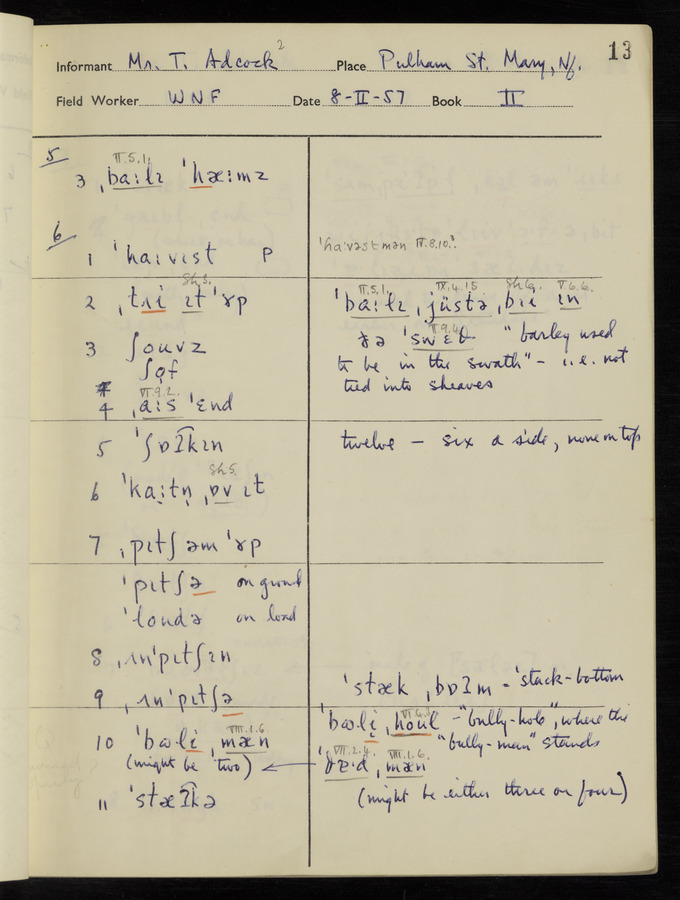 13
Informant Mr. T. Adcock 2 Place Pulham St. Mary, Nf.
Field Worker WNF Date 8-II-57 Book II
5
II.5.1.
3 ˌba:lɪ ˈhæ:mz
6
1 ˈha:vɪst P
ˈha:vəstmən II.8.10.
Sh.3.
2 ˌtɹi ɪt ˈɤp
3 ʃouvz
ʃɒf
VI.9.2.
4 ˌa:s ˈɛnd
II.5.1. IX.4.15 Sh.6. V.6.6.
ˈba:lɪ ˌjüstə ˌbɪi ɪn
II.9.4.
ðə ˈswɛθ "barley used
to be in the swath" – i.e. not
tied into sheaves
5 ˈʃɒʔkɪn
twelve – six a side, none on top
Sh.5.
6 ˈka:tn̩ ˌɒv ɪt
7 ˌpɪtʃ əm ˈɤp
ˈpɪtʃə on ground
ˈloudə on load
8 ˌɪnˈpɪtʃɪn
9 ˌɪnˈpɪtʃə
ˈstæk ˌbɒʔm - ˈstack-bottom
VIII.1.6.
10 ˈbʊli ˌmæn
(might be two) ←
ˈbʊli ˌhoul – "bully-hole", where the
"bully-man" stands
VII.2.4. VIII.1.6.
ˌmæn
(might be either three or four)
11 ˈstæʔkə